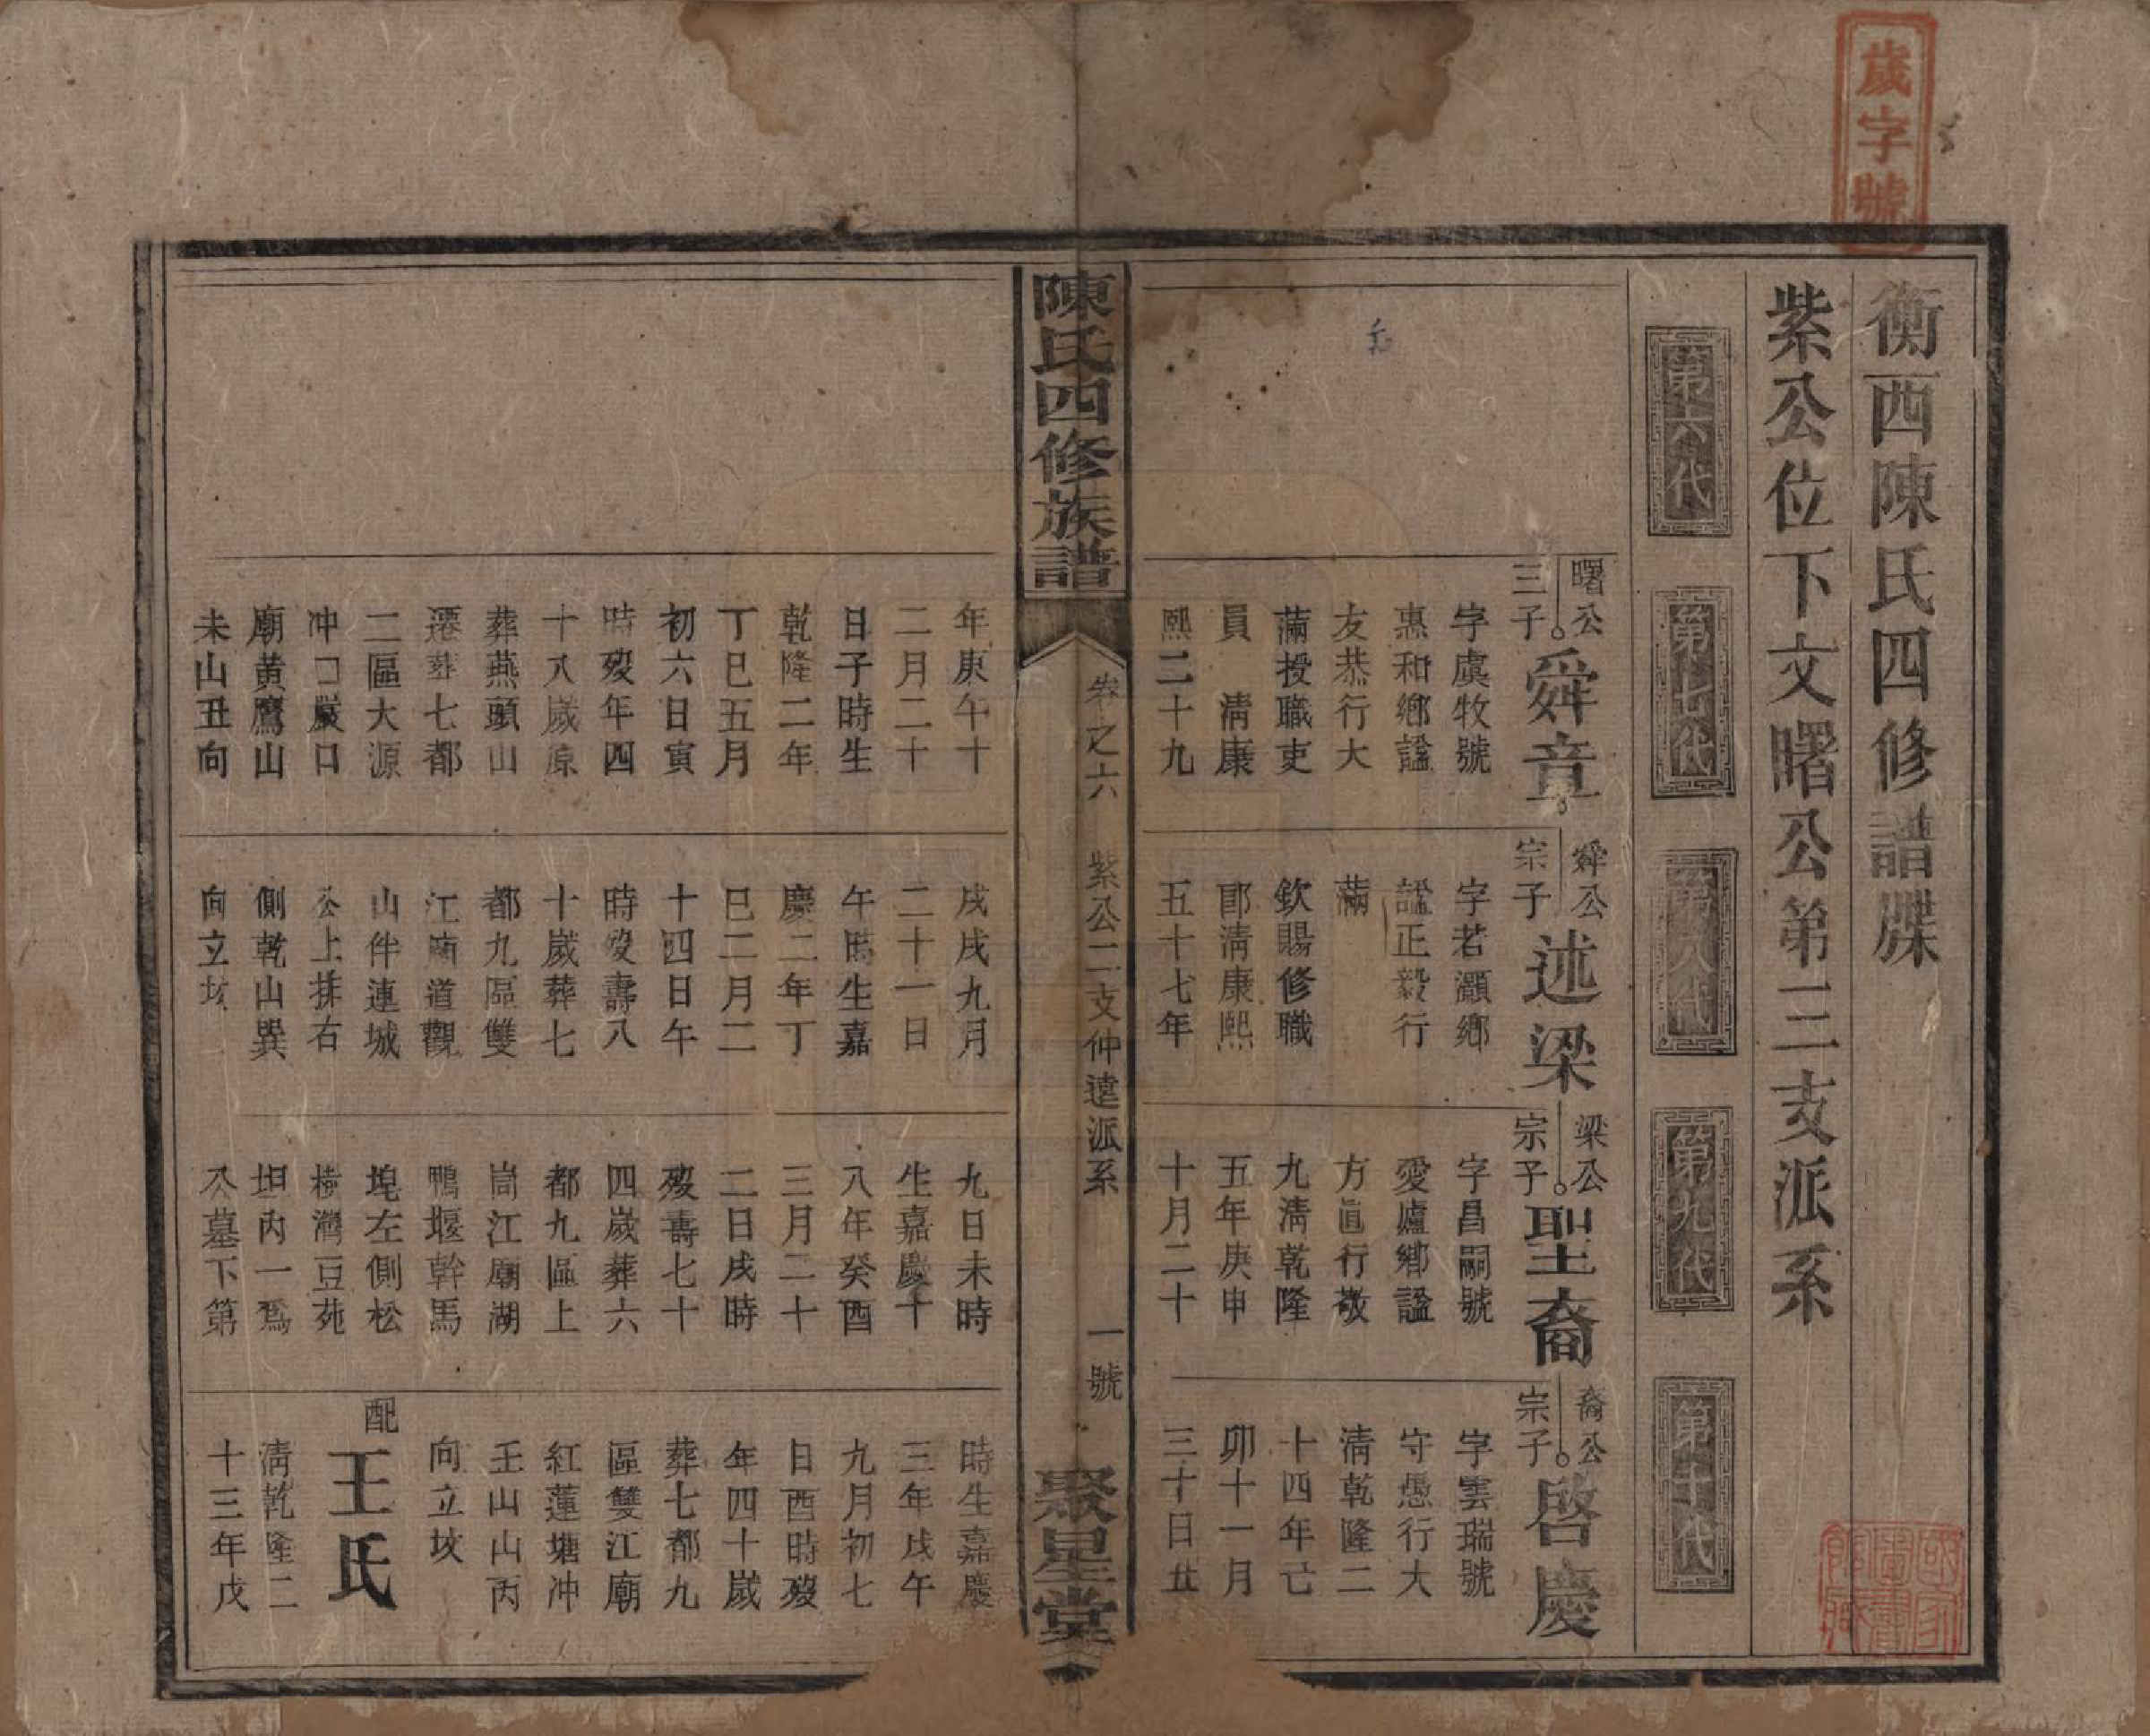 歲字號
衡西陳氏四修譜牒
紫公位下文曙公第三支派系
第六代
第七代
第八代
第九代
第十代
曙公
三子
舜章
字虞牧號
惠和鄉諡
友恭行大
滿授職吏
員 清康
熙二十九
年庚午十
二月二十
日子時生
乾隆二年
丁巳五月
初六日寅
時歿年四
十八歲原
葬燕頭山
遷葬七都
二區大源
冲口嚴口
廟黄鷹山
未山丑向
舜公
宗子
述梁
字若灝鄉
諡正毅行
滿
欽賜修職
郎清康熙
五十七年
戊戌九月
二十一日
午時生嘉
慶二年丁
巳二月二
十四日午
時歿壽八
十歲葬七
都九區雙
江廟道觀
山伴連城
公上排右
側乾山巽
向立坟
梁公
宗子
聖裔
字昌嗣號
愛廬鄉諡
方直行敬
九清乾隆
五年庚申
十月二十
九日未時
生嘉慶十
八年癸酉
三月二十
二日戌時
歿壽七十
四歲葬六
都九區上
崗江廟湖
鴨堰幹馬
埠左側松
樹灣豆苑
坦內一爲
公墓下第
裔公
宗子
啓慶
字雲瑞號
守愚行大
清乾隆二
十四年己
卯十一月
三十日丑
時生嘉慶
三年戊午
九月初七
日酉時歿
年四十歲
葬七都九
區雙江廟
紅蓮塘冲
壬山山丙
向立坟
配
王氏
清乾隆二
十三年戊
陳氏四修族譜
卷之六 紫公二支仲遠派系 一號
聚星堂